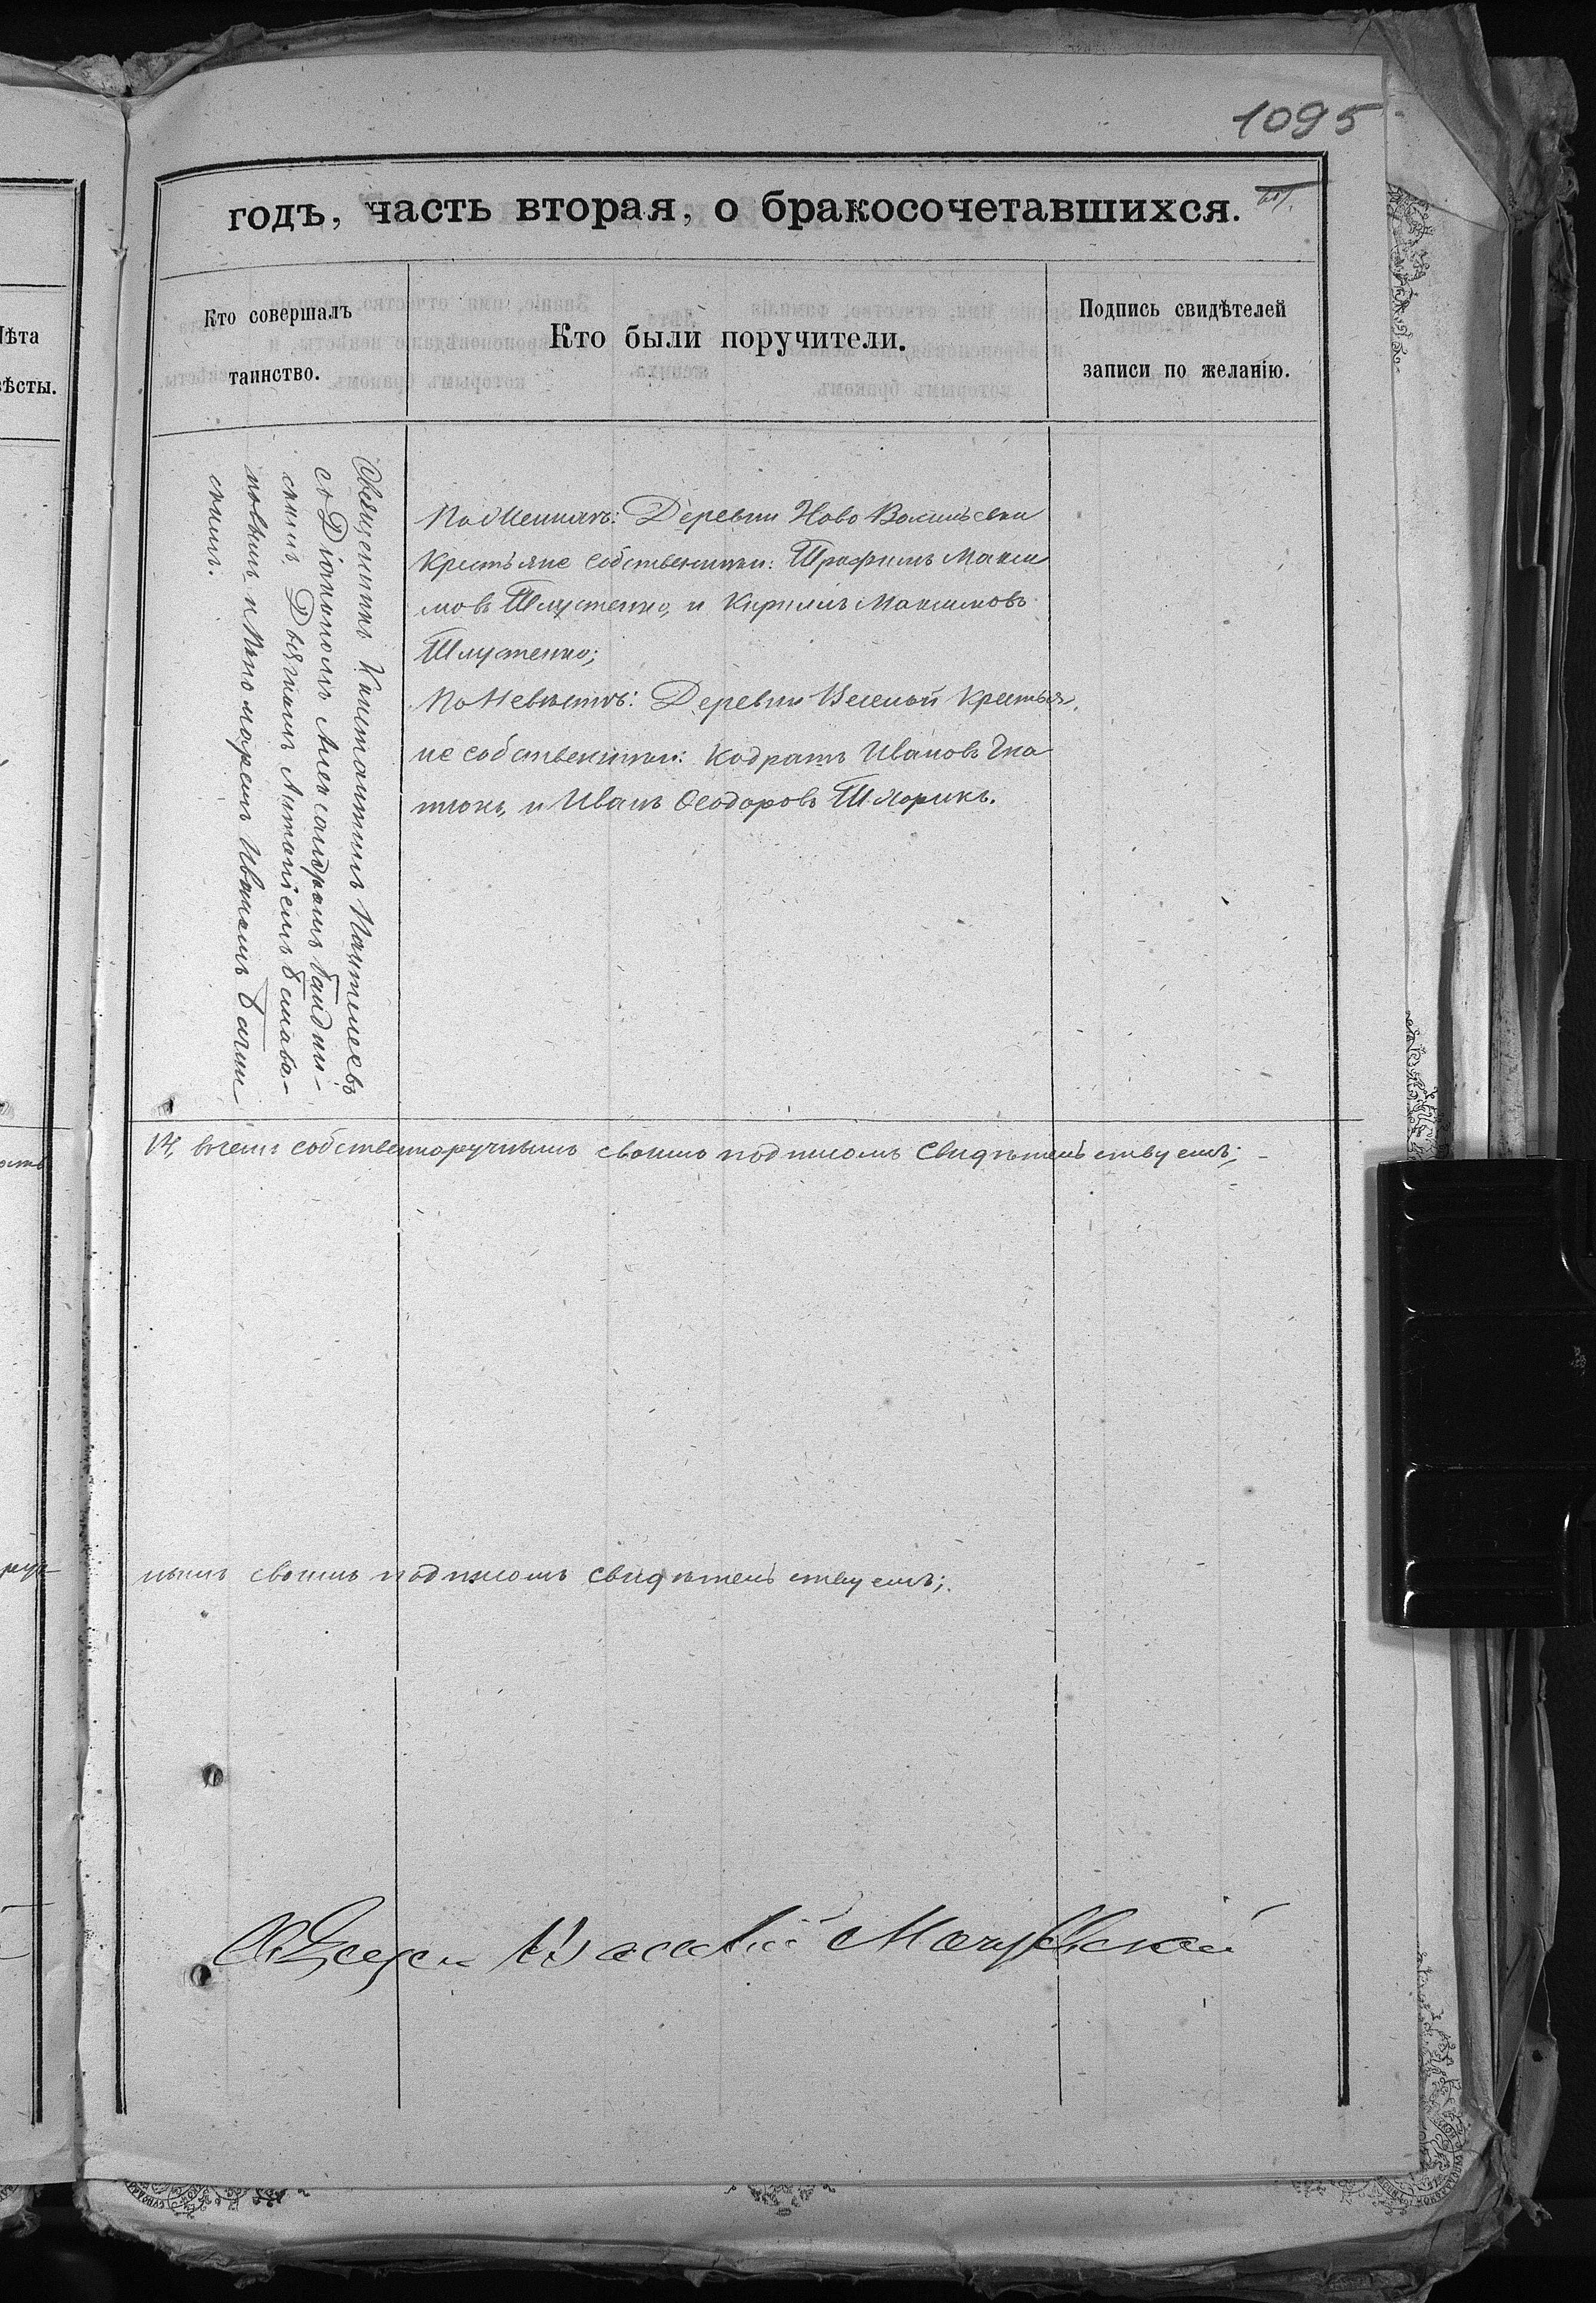 1095
годъ, часть вторая, о бракосочетавшихся.
Лѣта
вѣсты.
Кто совершалъ
таинство.
Кто были поручители.
Подпись свидѣтелей
записи по желанію.
Священникъ Константинъ Пантелеевъ
съ Діакономъ Александромъ
скимъ, Дьячкомъ Антоніемъ
повымъ и Пономаремъ Иваномъ
скимъ.
По Женихѣ: Деревни Ново
Крестьяне собственники: Трафимъ Макси
мовъ Шлустенко, и Кирилъ Максимовъ
Шлустенко;
По Невѣстѣ: Деревни Веселой Крестья
не собственники: Кодратъ Ивановъ Гна
тюкъ, и Иванъ Ѳеодоровъ Шкорикъ.
въ чемъ собственноручнымъ своимъ подписомъ свидѣтельствуемъ;
нымъ своимъ подписомъ свидѣтельствуемъ;